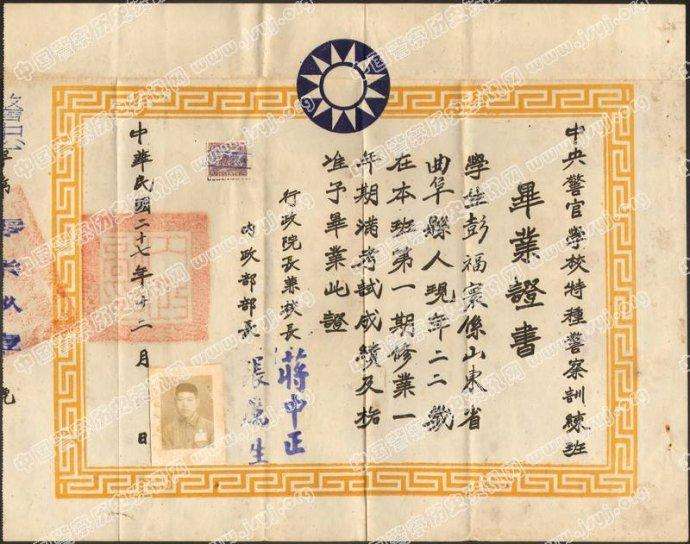 中央警官學校特種警察訓練班
畢業證書
學生彭福襄係山東省
曲阜縣人現年二二歲
在本班第一期修業一
年期滿考試成績及格
准予畢業此證
行政院長兼校長 蔣中正
內政部部長 張厲生
中華民國二十七年十二月 日
號